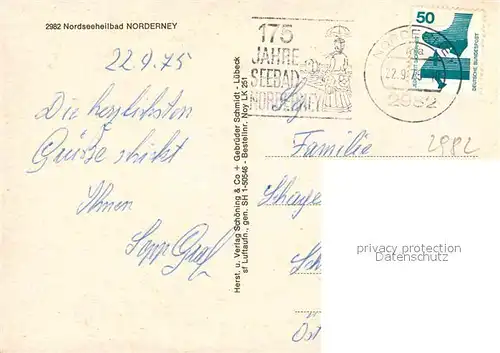 2982 Nordseeheilbad NORDERNEY
22.9.75
Die herzlichsten
Grüße schickt
Ihnen
Sopp Graf
Herst. u. Verlag Schöning & Co + Gebrüder Schmidt - Lübeck
st Luftaufn., gen. SH 1-50546 - Bestellnr. Noy LK 251
175
JAHRE
SEEBAD
NORDERNEY
22.9.75
2982
50
DEUTSCHE BUNDESPOST
Familie
2982
privacy protection
Datenschutz
Öst